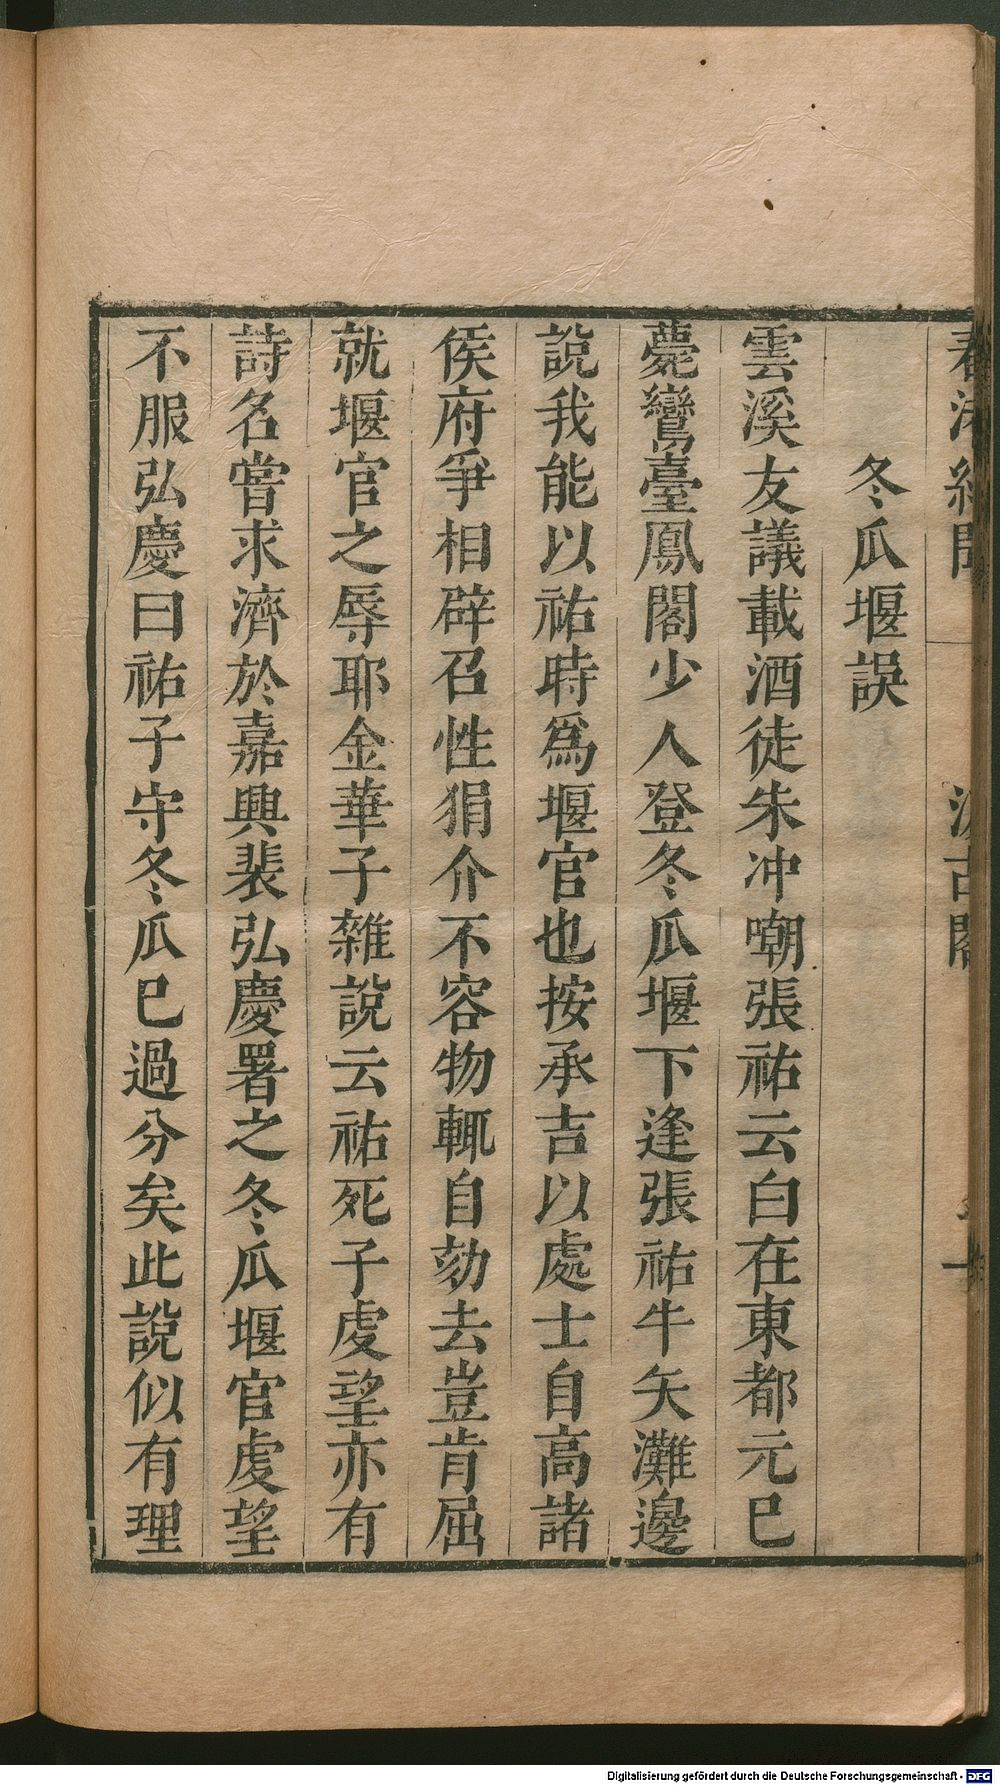 冬瓜堰誤
雲溪友議載酒徒朱冲嘲張祐云白在東都元巳
薨鸞臺鳳閣少人登冬瓜堰下逢張祐牛矢灘邊
說我能以祐時爲堰官也按承吉以處士自高諸
侯府爭相辟召性狷介不容物輒自劾去豈肯屈
就堰官之辱耶金華子雜說云祐死子虔望亦有
詩名嘗求濟於嘉興裴弘慶署之冬瓜堰官虔望
不服弘慶曰祐子守冬瓜巳過分矣此說似有理
Digitalisierung gefördert durch die Deutsche Forschungsgemeinschaft - DFG